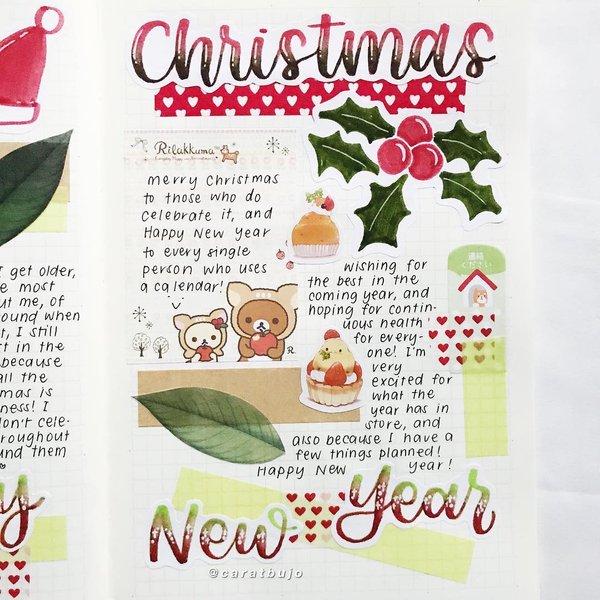 Christmas
Rilakkuma
merry Christmas
to those who do
celebrate it, and
Happy New Year
to every single
person who uses
a calendar!
連絡
ください
Wishing for
the best in the
coming year, and
hoping for contin-
uous health
for every-
one! I'm
very
excited for
what the
year has in
store, and
also because I have a
few things planned!
Happy New year!
I get older,
most
ut me, of
ound when
t, I still
in the
because
all the
mas is
ness! I
on't cele-
roughout
und them
y
New Year
@caratbujo